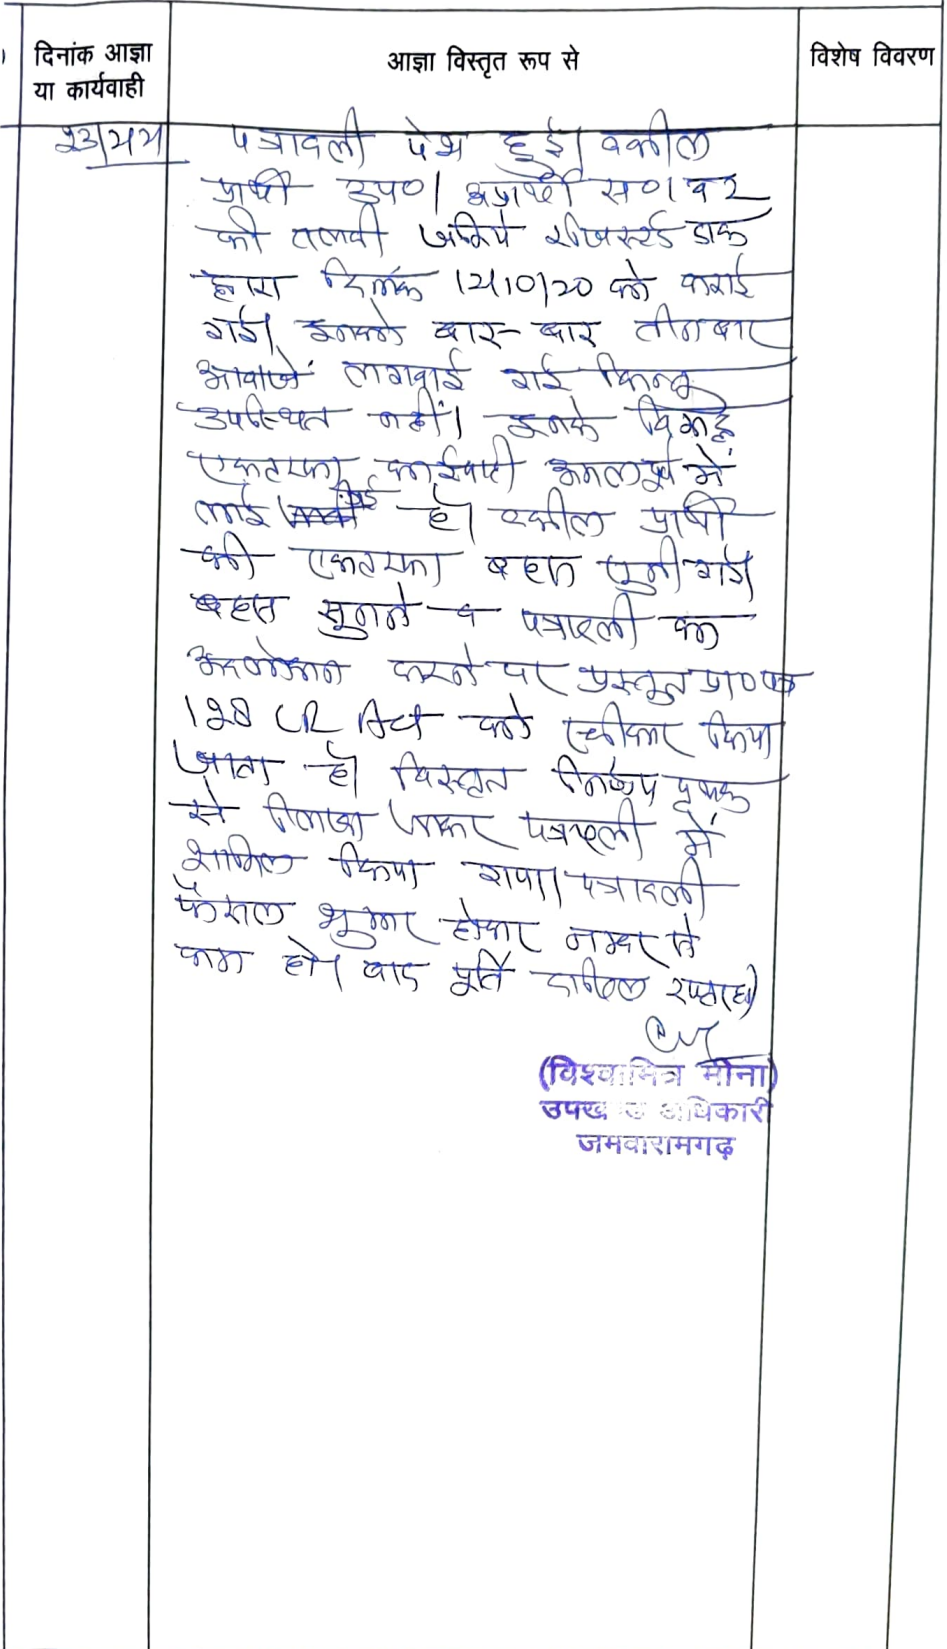 दिनांक आज्ञा
या कार्यवाही
आज्ञा विस्तृत रूप से
विशेष विवरण
पत्रावली पेश हुई। वकील
प्रार्थी उप०। अप्रार्थी स० 1 व 2
की तलबी जरिये रजिस्टर्ड डाक
द्वारा दिनांक 12/10/20 को कराई
गई। इनको बार-बार तीन बार
आवाजें लगवाई गई किन्तु
उपस्थित नहीं। इनके विरूद्ध
एकतरफा कार्यवाही अमल में
लाई गई है। वकील प्रार्थी
की एकतरफा बहस सुनी गई।
बहस सुनने व पत्रावली का
अवलोकन करने पर प्रस्तुत प्रा० पत्र
128 LR Act को स्वीकार किया
जाता है। विस्तृत निर्णय पृथक
से लिखा जाकर पत्रावली में
शामिल किया गया। पत्रावली
फैसल शुमार होकर नम्बर से
कम हो। बाद पूर्ति दाखिल दफ्तर हो।
(विश्वामित्र मीना)
उपखण्ड अधिकारी
जमवारामगढ़